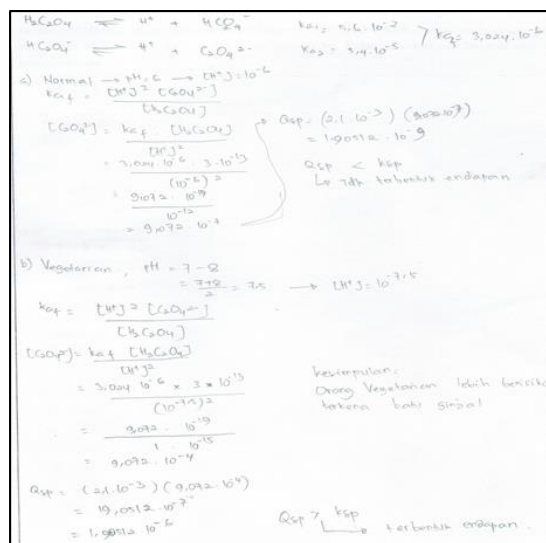 H₂C₂O₄ ⇌ H⁺ + HC₂O₄⁻ ka₁ = 5,6 . 10⁻²
HC₂O₄⁻ ⇌ H⁺ + C₂O₄²⁻ ka₂ = 5,4 . 10⁻⁵ > ka₃ = 3,024 . 10⁻⁶
a) Normal → pH = 6 → [H⁺] = 10⁻⁶
kaf = [H⁺]² [C₂O₄²⁻] / [H₂C₂O₄]
[C₂O₄²⁻] = kaf . [H₂C₂O₄] / [H⁺]²
= 3,024 . 10⁻⁶ . 3 . 10⁻¹³ / (10⁻⁶)²
= 9,072 . 10⁻¹⁹ / 10⁻¹²
= 9,072 . 10⁻⁷
Qsp = (2,1 . 10⁻³) (9,072 . 10⁻⁷)
= 1,90512 . 10⁻⁹
Qsp < ksp
↳ tdk terbentuk endapan
b) Vegetarian, pH = 7 - 8
= 7+8 / 2 = 7,5 → [H⁺] = 10⁻⁷·⁵
kaf = [H⁺]² [C₂O₄²⁻] / [H₂C₂O₄]
[C₂O₄²⁻] = kaf [H₂C₂O₄] / [H⁺]²
= 3,024 10⁻⁶ × 3 * 10⁻¹³ / (10⁻⁷·⁵)²
= 9,072 . 10⁻¹⁹ / 1 . 10⁻¹⁵
= 9,072 . 10⁻⁴
Qsp = (2,1 . 10⁻³) (9,072 . 10⁻⁴)
= 19,0512 . 10⁻⁷
= 1,90512 . 10⁻⁶
kesimpulan.
Orang Vegetarian lebih berisiko
terkena batu ginjal
Qsp > ksp
→ terbentuk endapan.